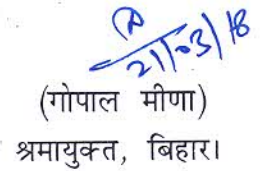 21/03/18
(गोपाल मीणा)
श्रमायुक्त, बिहार।